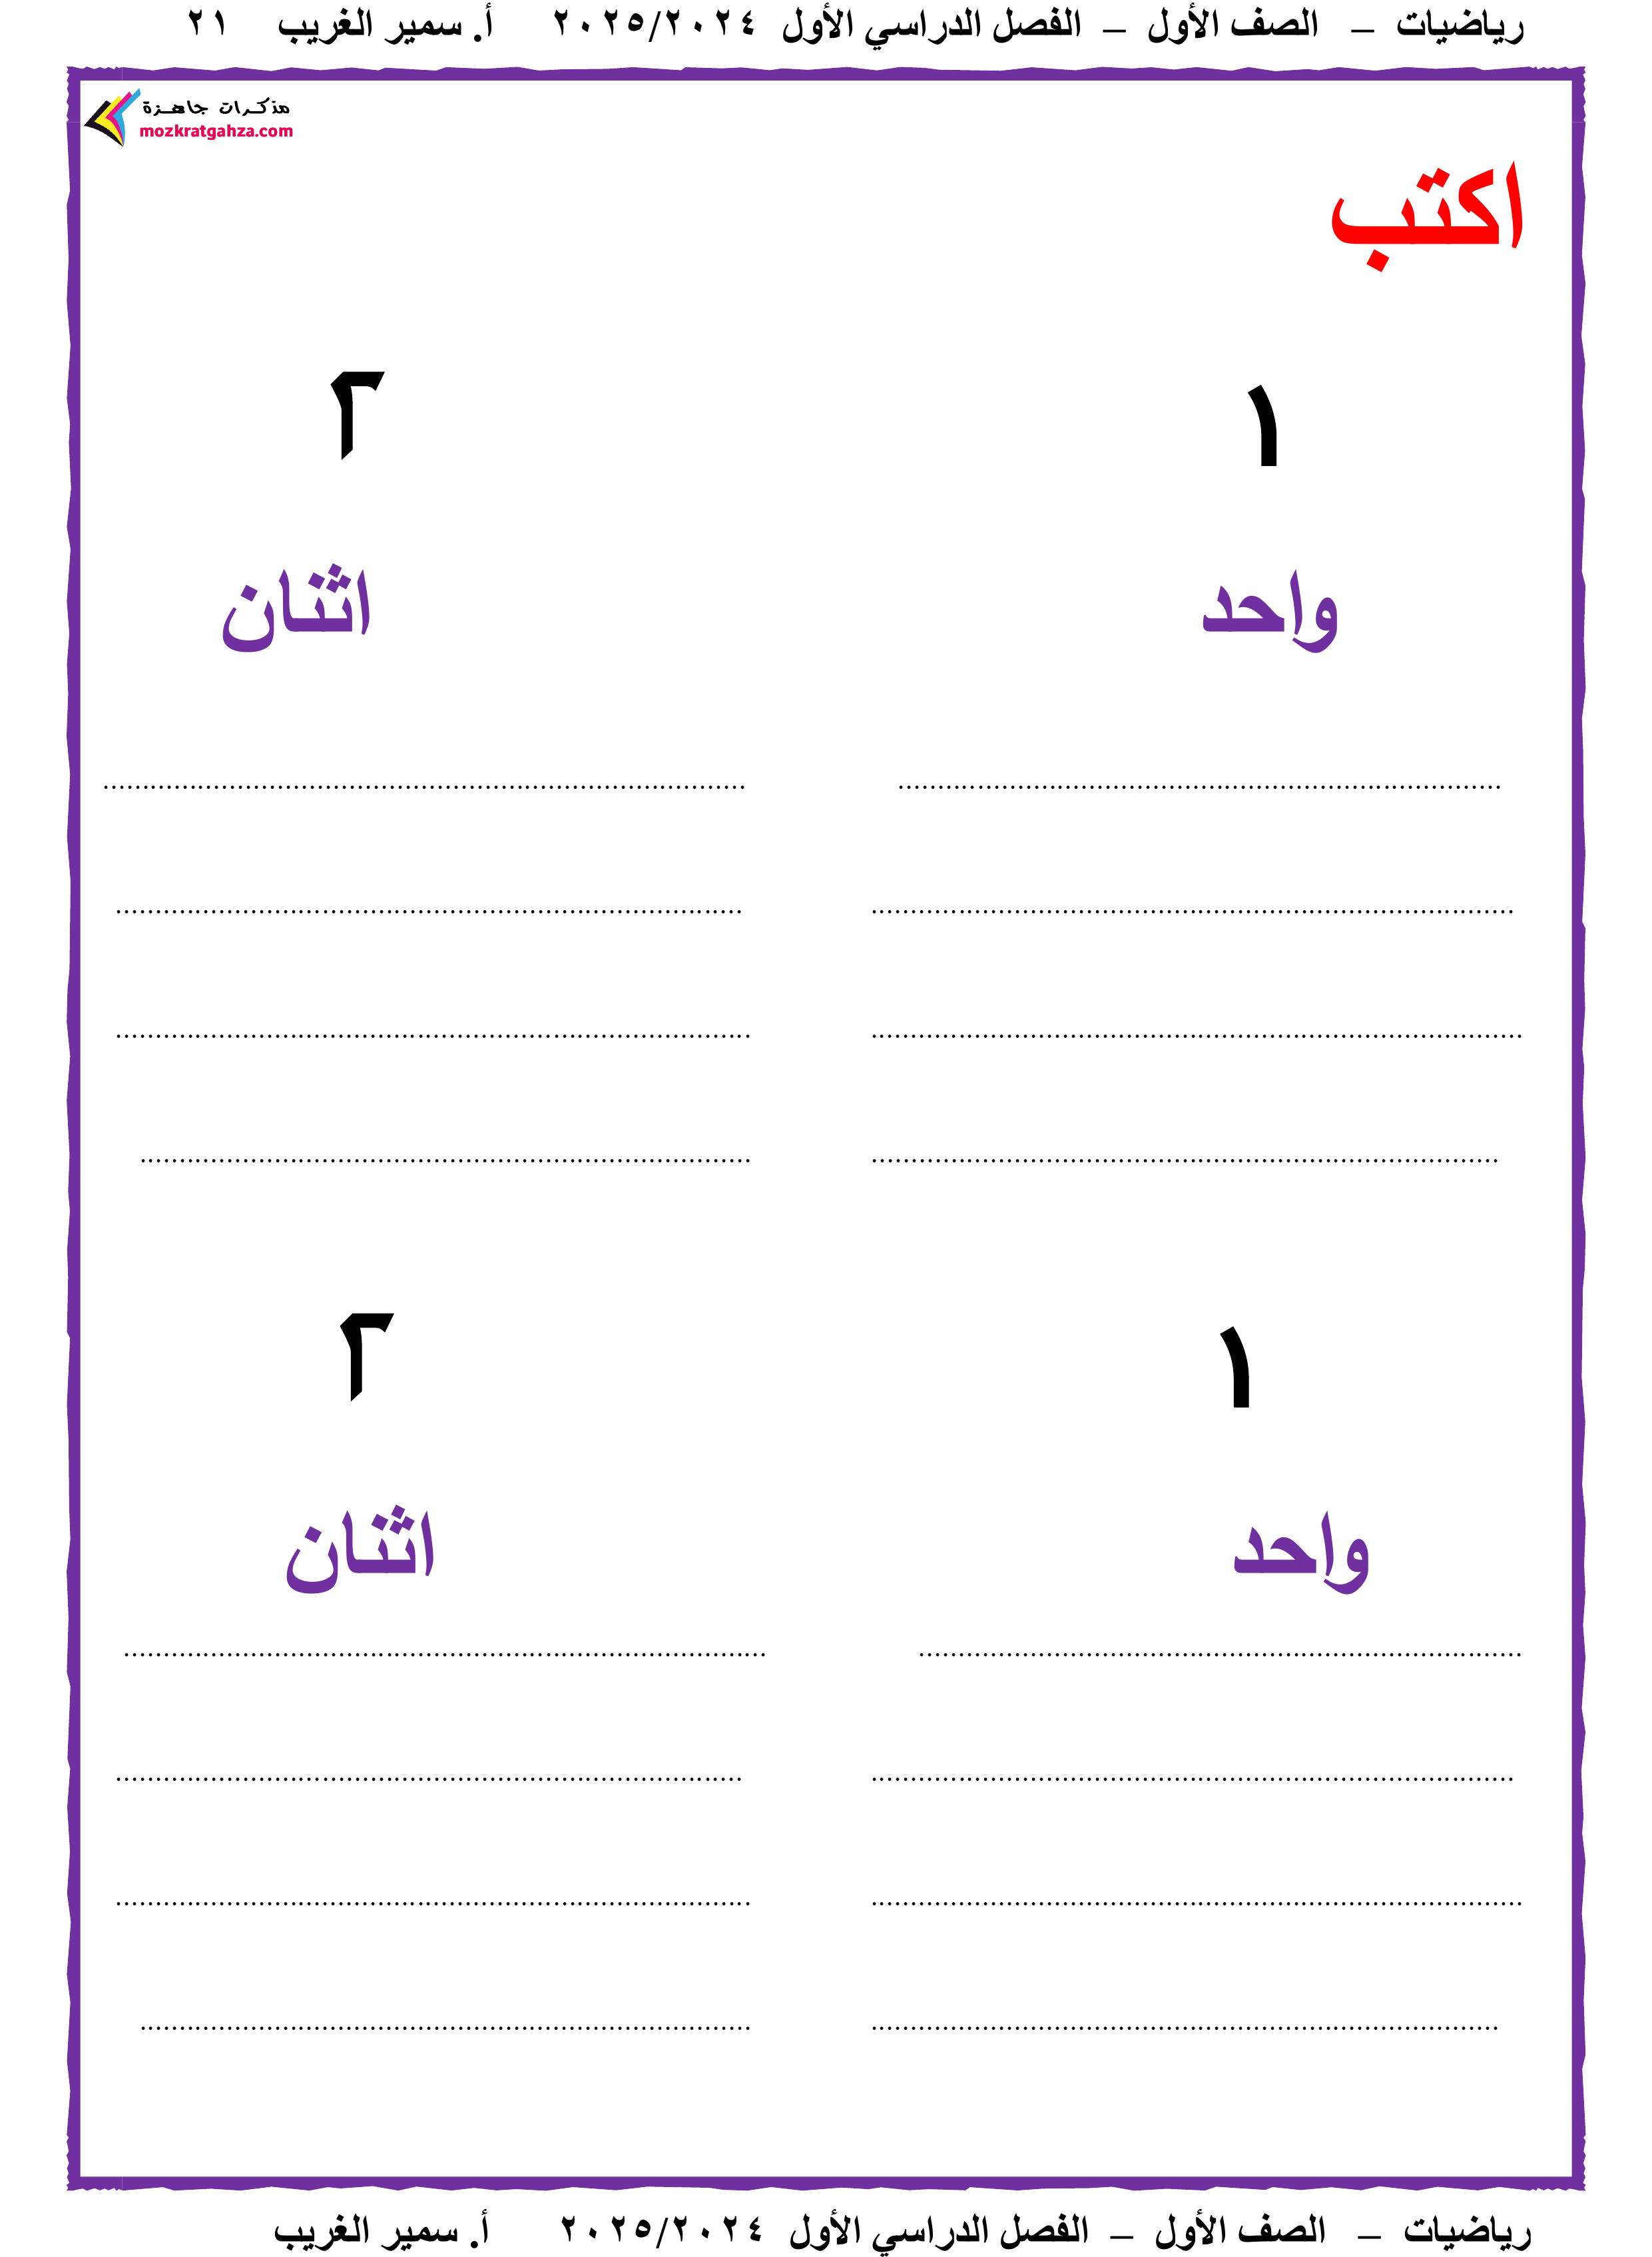 رياضيات – الصف الأول – الفصل الدراسي الأول ٢٠٢٥/٢٠٢٤ أ. سمير الغريب ٢١
مذكرات جاهزة
mozkratgahza.com
اكتب
١ ٢
واحد اثنان
........................................ ........................................
........................................ ........................................
........................................ ........................................
........................................ ........................................
١ ٢
واحد اثنان
........................................ ........................................
........................................ ........................................
........................................ ........................................
........................................ ........................................
رياضيات – الصف الأول – الفصل الدراسي الأول ٢٠٢٥/٢٠٢٤ أ. سمير الغريب